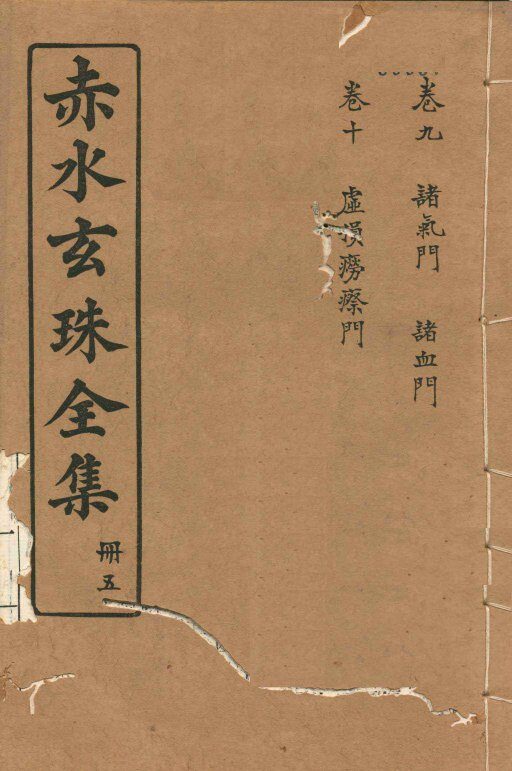 卷九 諸氣門 諸血門
卷十 虛損癆瘵門
赤水玄珠全集
冊五